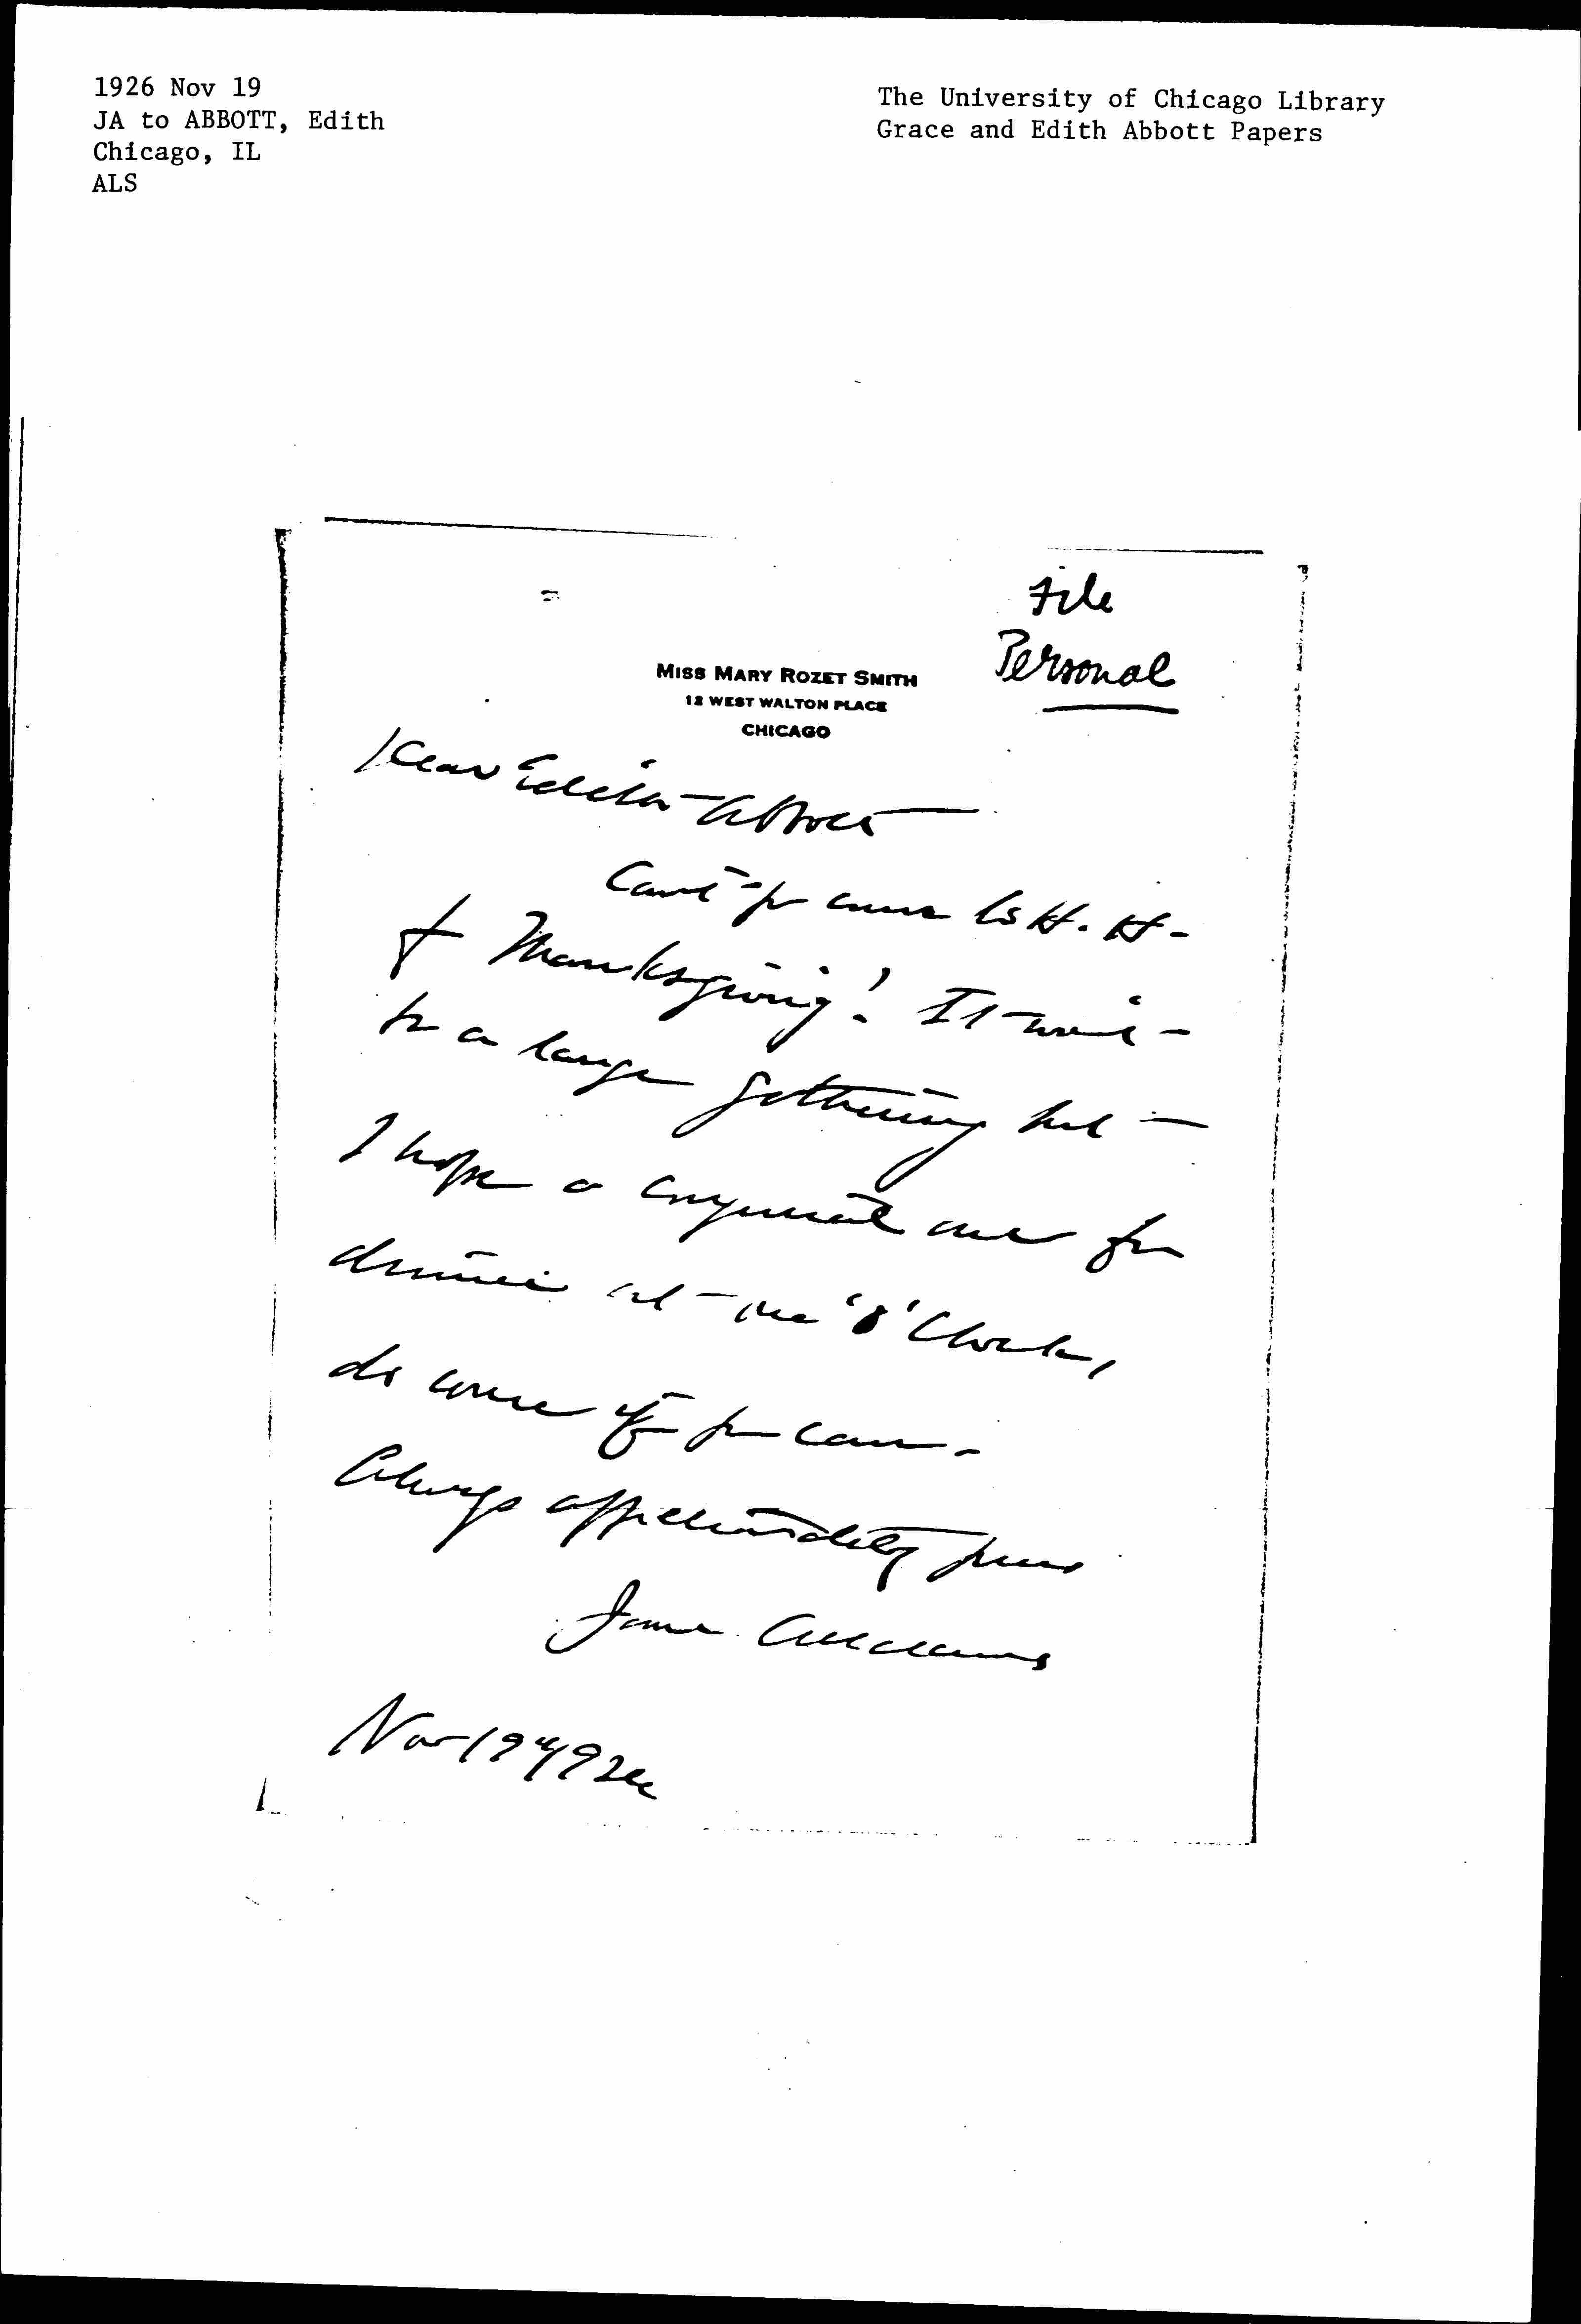 1926 Nov 19
JA to ABBOTT, Edith
Chicago, IL
ALS
The University of Chicago Library
Grace and Edith Abbott Papers
File
Personal
MISS MARY ROZET SMITH
12 WEST WALTON PLACE
CHICAGO
Dear Edith Abbott
Can't you come to H. H-
for Thanksgiving! It won't
be a large gathering but
I hope a congenial one for
dinner at one 'o' Clock,
do come if you can.
Always affectionately yours
Jane Addams
Nov 19" 1926